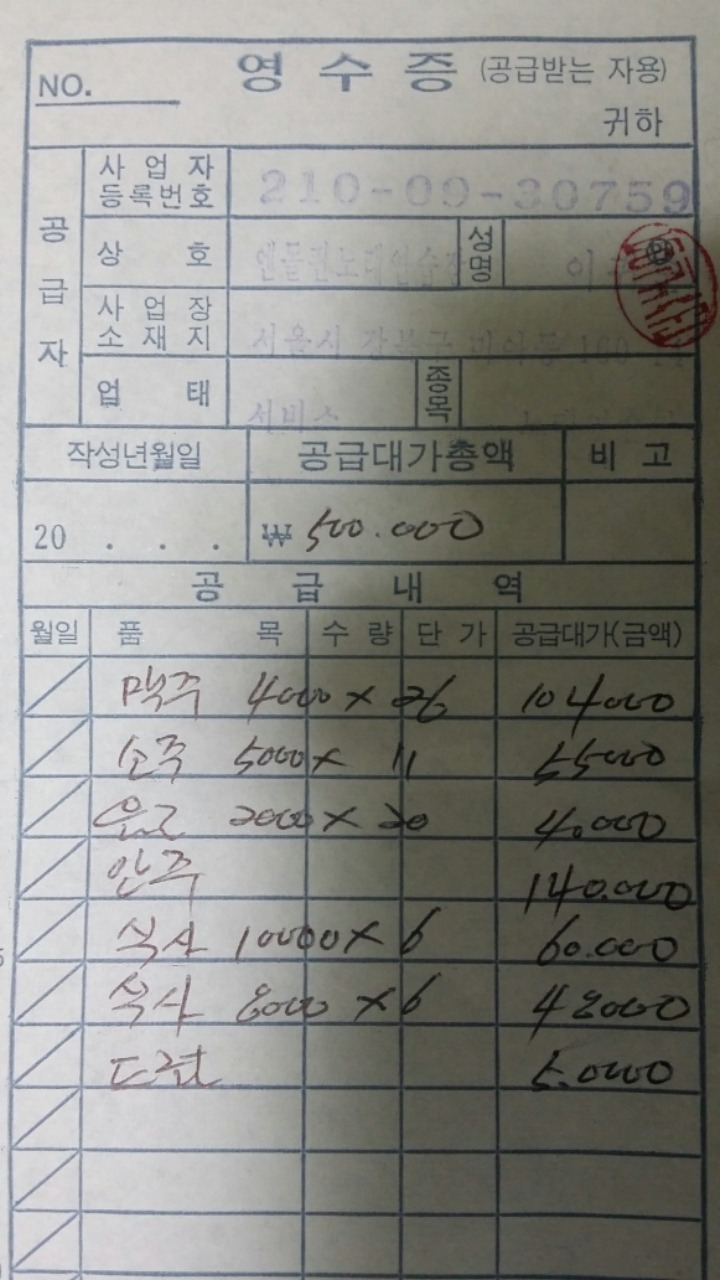 영 수 증 (공급받는 자용)
NO.
귀하
공급자
사업자등록번호 210-09-30759
상 호 성명
사업장소재지 서울시 강북구 160
업 태 서비스 종목
작성년월일 공급대가총액 비고
20 . . . ₩ 500.000
공 급 내 역
월일 품 목 수량 단가 공급대가(금액)
맥주 4000 × 26 104000
소주 5000 × 11 55000
2000 × 20 4.000
안주 140.000
식사 10000 × 6 60.000
식사 8000 × 6 48000
5.000